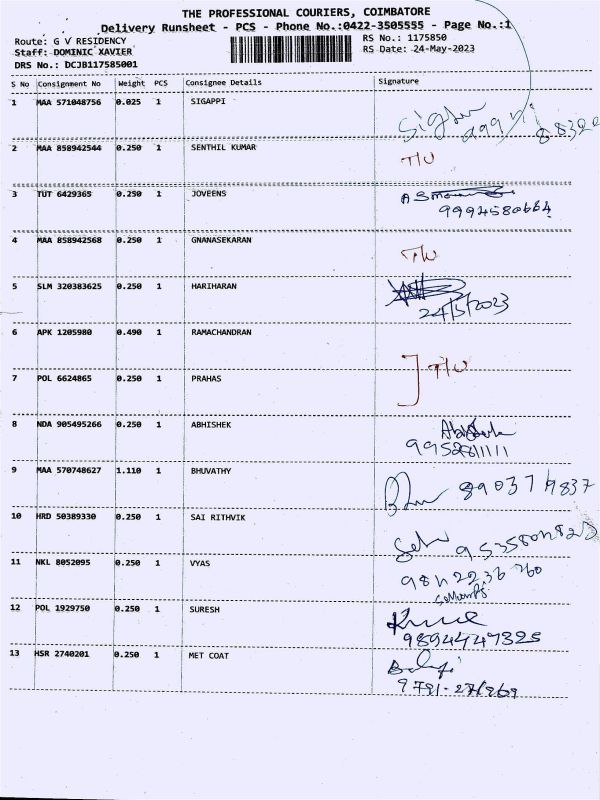 THE PROFESSIONAL COURIERS, COIMBATORE
Delivery Runsheet - PCS - Phone No.:0422-3505555 - Page No.:1
Route: G V RESIDENCY RS No.: 1175850
Staff: DOMINIC XAVIER RS Date: 24-May-2023
DRS No.: DCJB117585001
S No Consignment No Weight PCS Consignee Details Signature
1 MAA 571048756 0.025 1 SIGAPPI
2 MAA 858942544 0.250 1 SENTHIL KUMAR T/U
3 TUT 6429365 0.250 1 JOVEENS
9994580664
4 MAA 858942568 0.250 1 GNANASEKARAN T/U
5 SLM 320383625 0.250 1 HARIHARAN
24/5/2023
6 APK 1205980 0.490 1 RAMACHANDRAN
T/U
7 POL 6624865 0.250 1 PRAHAS
8 NDA 905495266 0.250 1 ABHISHEK
9 MAA 570748627 1.110 1 BHUVATHY
10 HRD 50389330 0.250 1 SAI RITHVIK
11 NKL 8052095 0.250 1 VYAS
12 POL 1929750 0.250 1 SURESH
9894447325
13 HSR 2740201 0.250 1 MET COAT